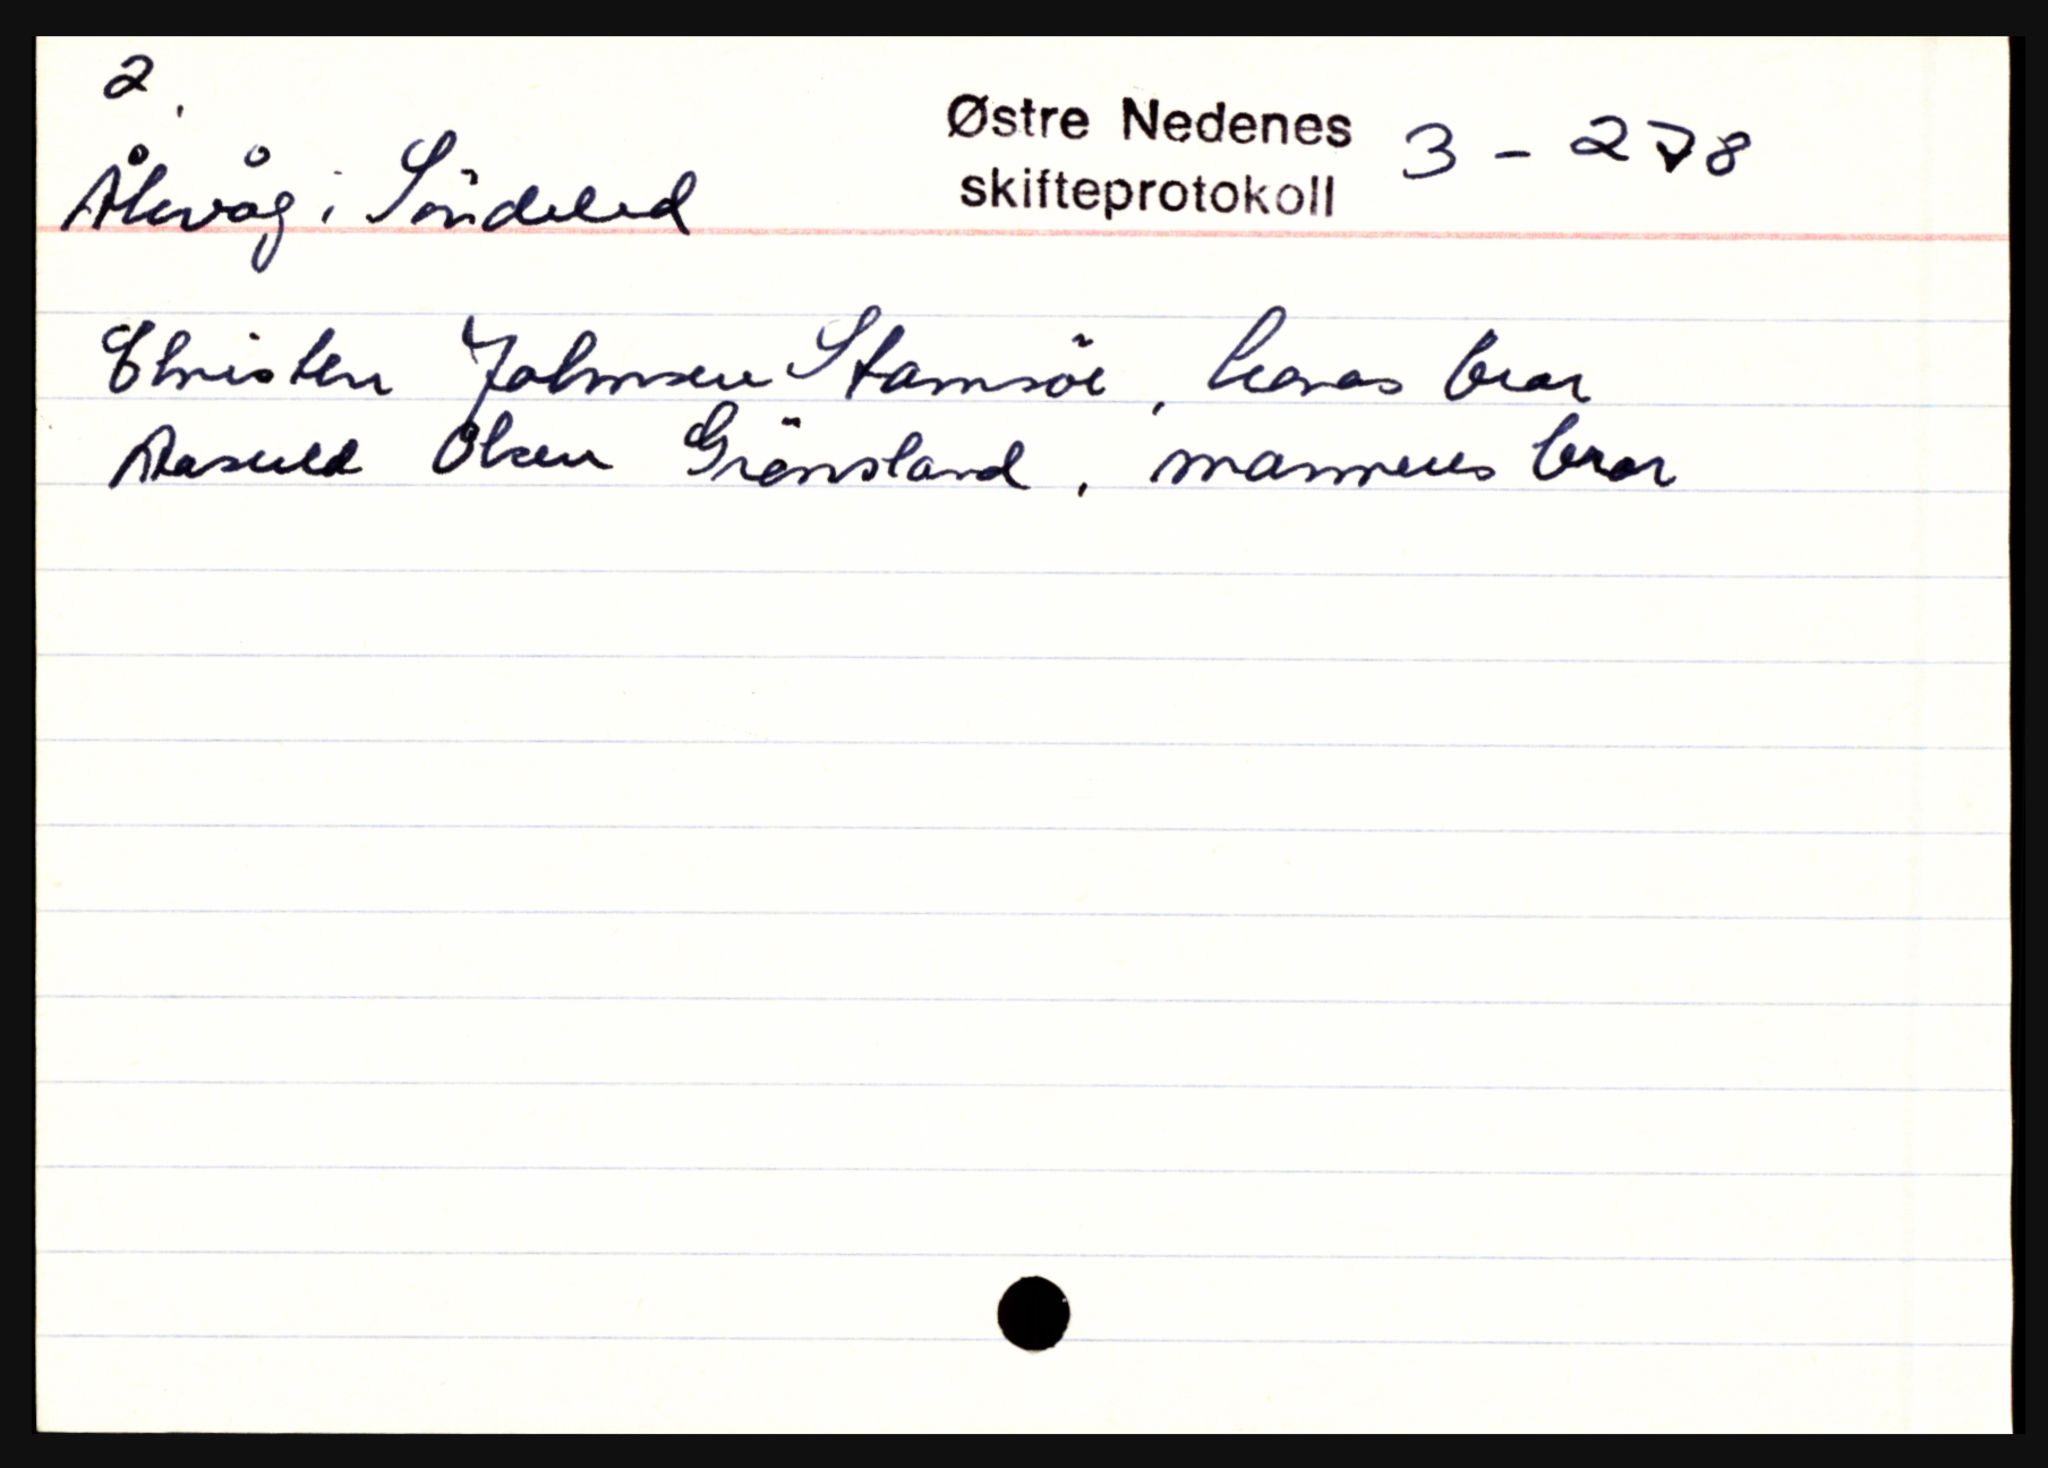 2.
Åkvåg i Söndeled
Østre Nedenes 3 - 278
skifteprotokoll
Christen Johnsen Stamsöe, konas bror
Aasuld Olsen Grönsland, mannens bror